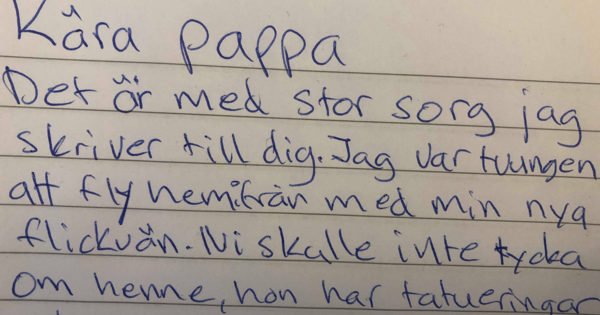 Kära pappa
Det är med stor sorg jag
skriver till dig. Jag var tvungen
att fly hemifrån med min nya
flickvän. Ni skalle inte tycka
om henne, hon har tatueringar